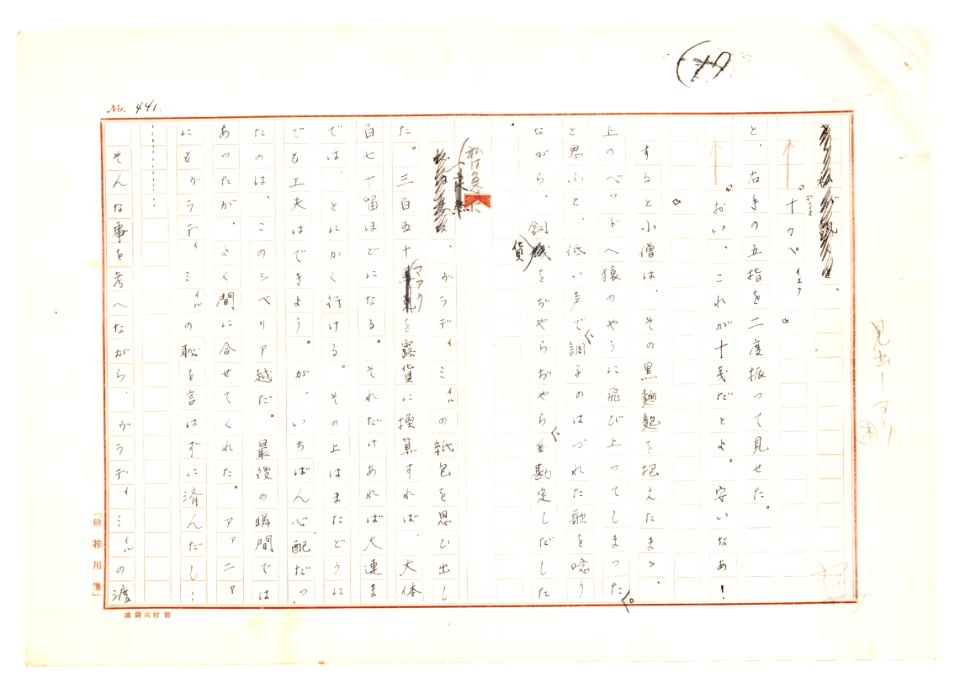 (十七)
No. 441.
「十カペイェク」
と、右手の五指を二度振って見せた。
「おい、これが十戔だとよ。安いなあ!
すると小僧は、その黒麺麭を抱えたまゝ、
上のベッドへ猿のやうに飛び上ってしまった
と思ふと、低い声で調子のはづれた歌を唸り
ながら、銅貨をぢやらぢやらと勘定しだした
。
私は急に、ヴラディミイルの紙包を思ひ出し
た。三百五十マアクを露貨に換算すれば、大体
百七十留ほどになる。それだけあれば大連ま
では、とにかく行ける。その上はまたどうに
でも工夫はできよう。が、いちばん心配だっ
たのは、このシベリア越だ。最後の瞬間では
あったが、よく間に合せてくれた。アァニャ
にもヴラディミイルの恥を言はずに済んだし…
…………
そんな事を考へながら、ヴラディミイルの渡